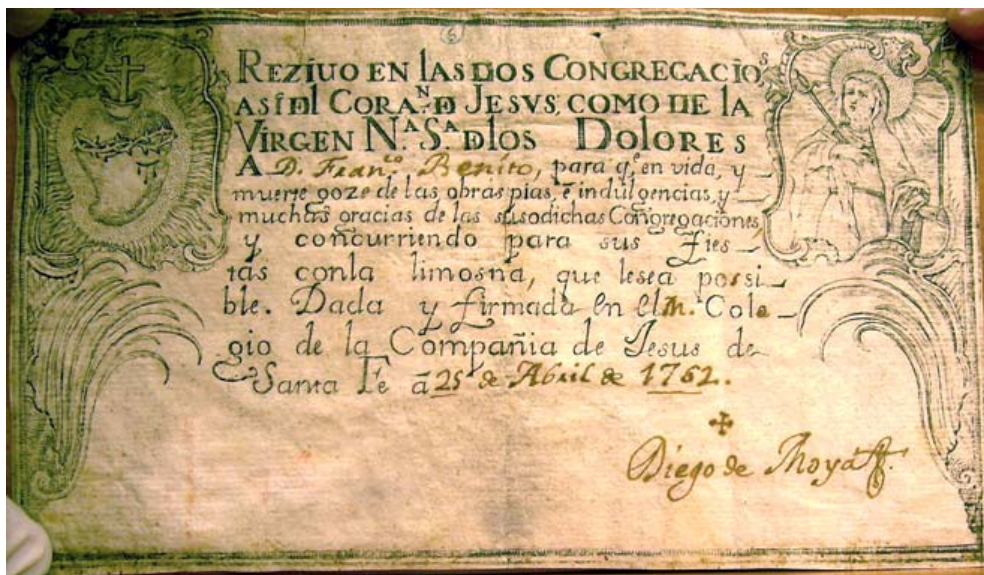 6
REZIUO EN LAS DOS CONGREGACIO^S
ASI DL CORA^N D JESVS, COMO DE LA
VIRGEN N^A. S^A. DLOS DOLORES
A D. Fran^co Benito, para q̃, en vida, y
muerte goze de las obras pias, e indulgencias, y
muchas gracias de las susodichas Congregaciones,
y concurriendo para sus Fies-
tas conla limosna, que lesea possi-
ble. Dada y firmada en el M. Cole-
gio de la Compañia de Jesus de
Santa Fè à 25 de Abril de 1762.
Diego de Moya